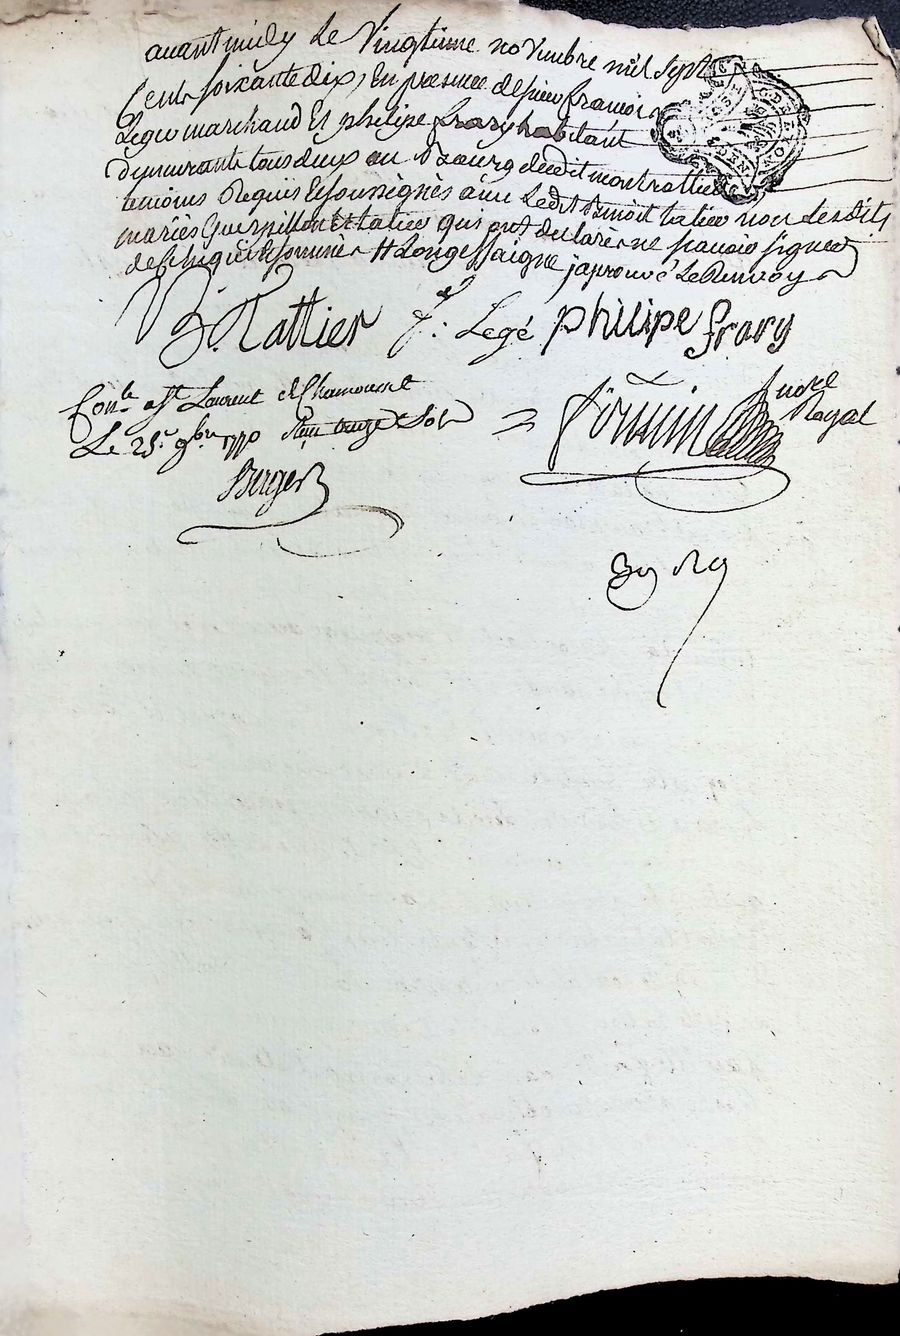 avant midy le Vingtieme novembre mil Sept
Cent soixante dix, En presence de sieur françois
Legé marchand Et philipe frary habitant
demeurants tous deux au Bourg dudit montrottier
temoins Requis Et soussignés avec Ledit Benoit tatier non Lesdits
mariés Guerpillon Et tatier qui ont declaré ne sçavoir signer
de ce Enquis Et sommés # Longessaigne japrouvé Le Renvoy
B. Tattier f. Legé philipe frary
Con.le a St Laurent de Chamousset
Le 25.e 9bre 1770 Sols
Berger
nore Royal